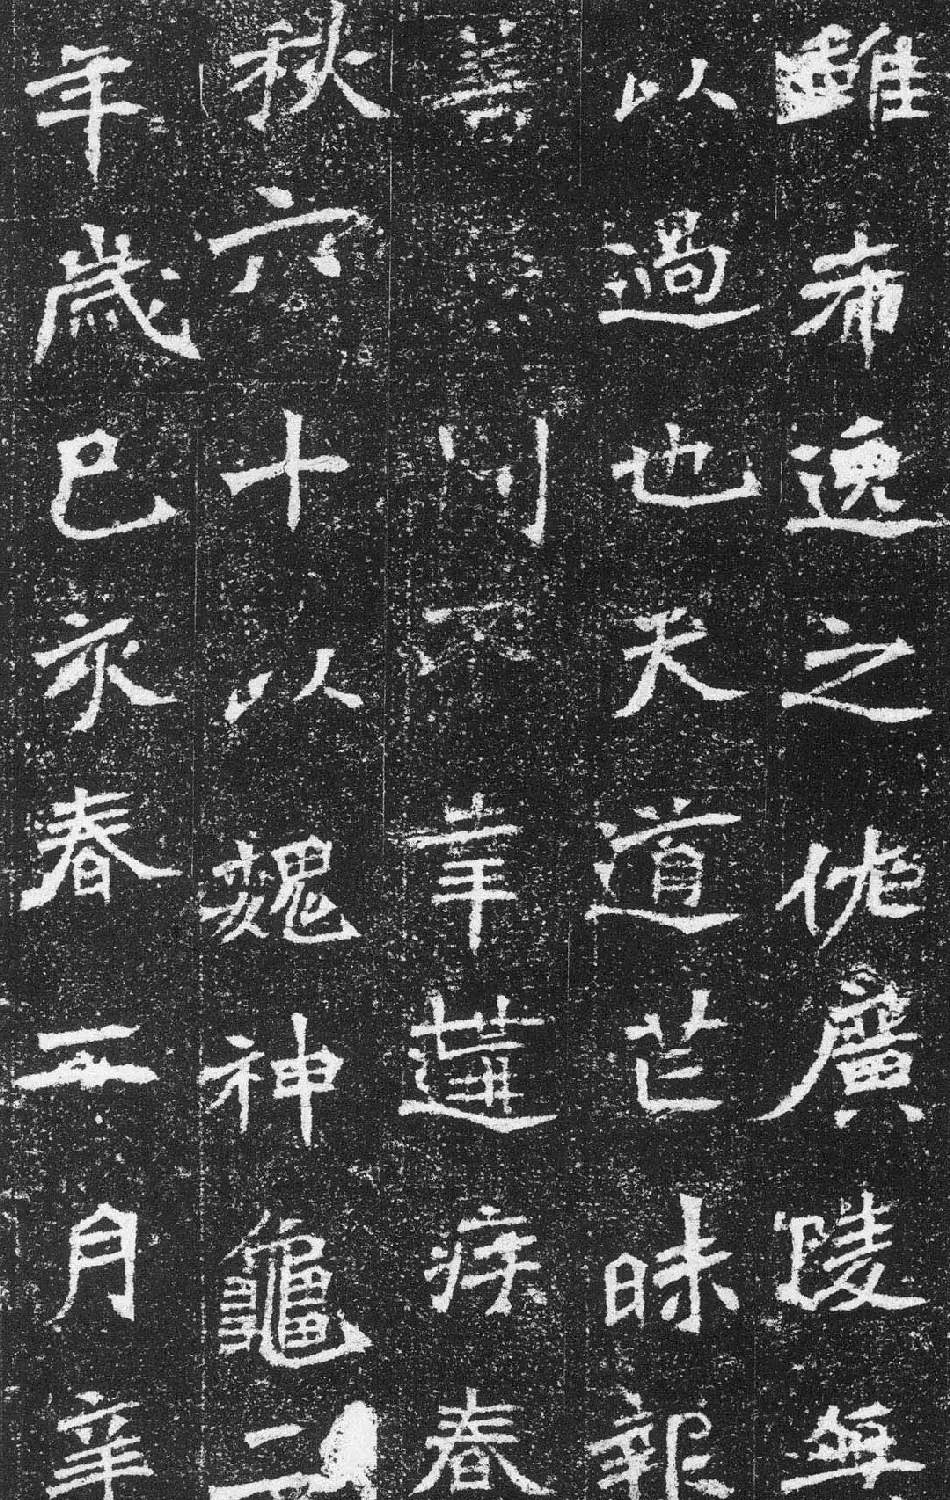 雖希逸之廣陵無
以過也天道芒昧報
善不幸遘疾春
秋六十以魏神龜二
年歲己亥春二月辛